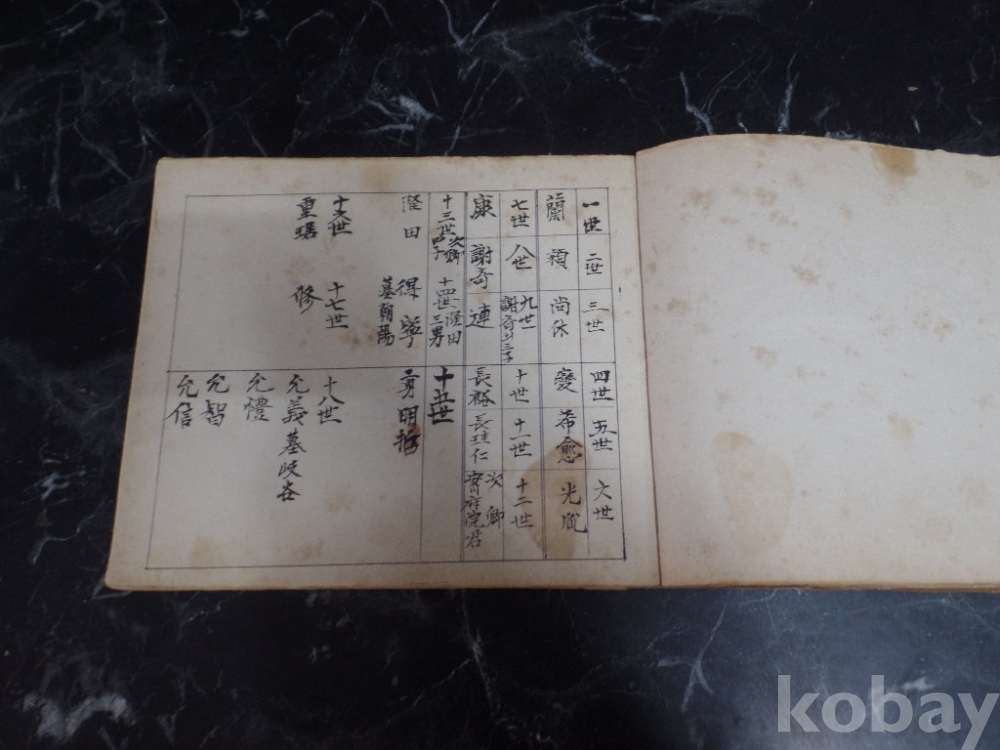 一世 二世 三世 四世 五世 六世
蘭 穎 尚休 變 希愈 光胤
七世 八世 九世 十世 十一世 十二世
謝奇의三子
康 謝奇 連 長裕 長 仁 次卿
院君
十三世 次卿 四子 十四世 隆田三男 十五世
隆田 得寧 勇明哲
墓朝陽
十六世 十七世 十八世
重琚 修 允義墓岐谷
允禮
允智
允信
kobay